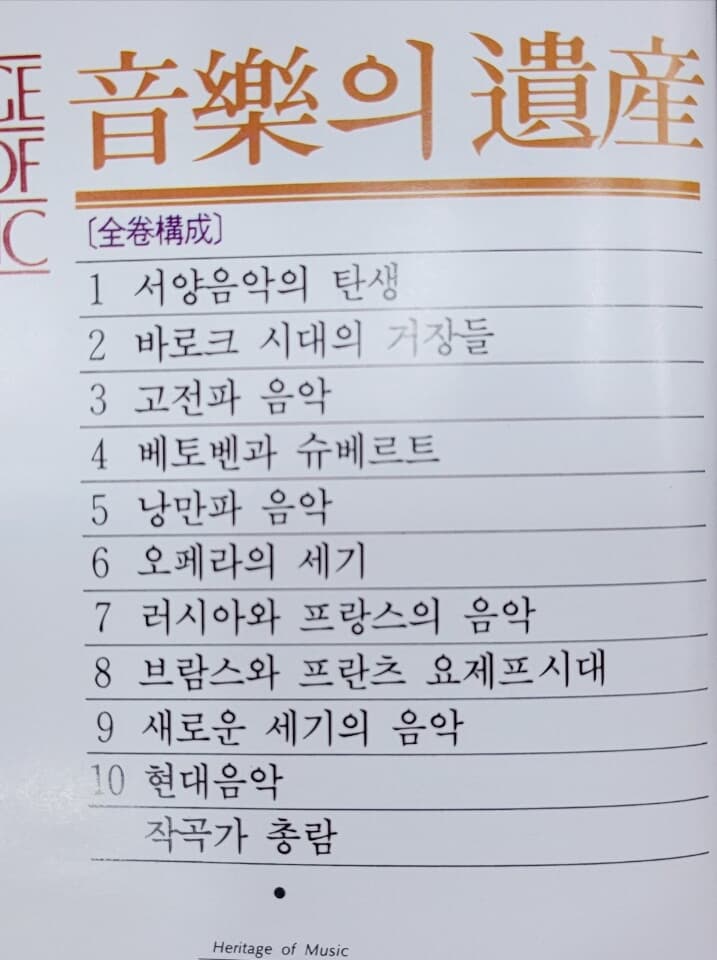 GE
OF
IC
音樂의 遺産
〔全卷構成〕
1 서양음악의 탄생
2 바로크 시대의 거장들
3 고전파 음악
4 베토벤과 슈베르트
5 낭만파 음악
6 오페라의 세기
7 러시아와 프랑스의 음악
8 브람스와 프란츠 요제프시대
9 새로운 세기의 음악
10 현대음악
작곡가 총람
Heritage of Music